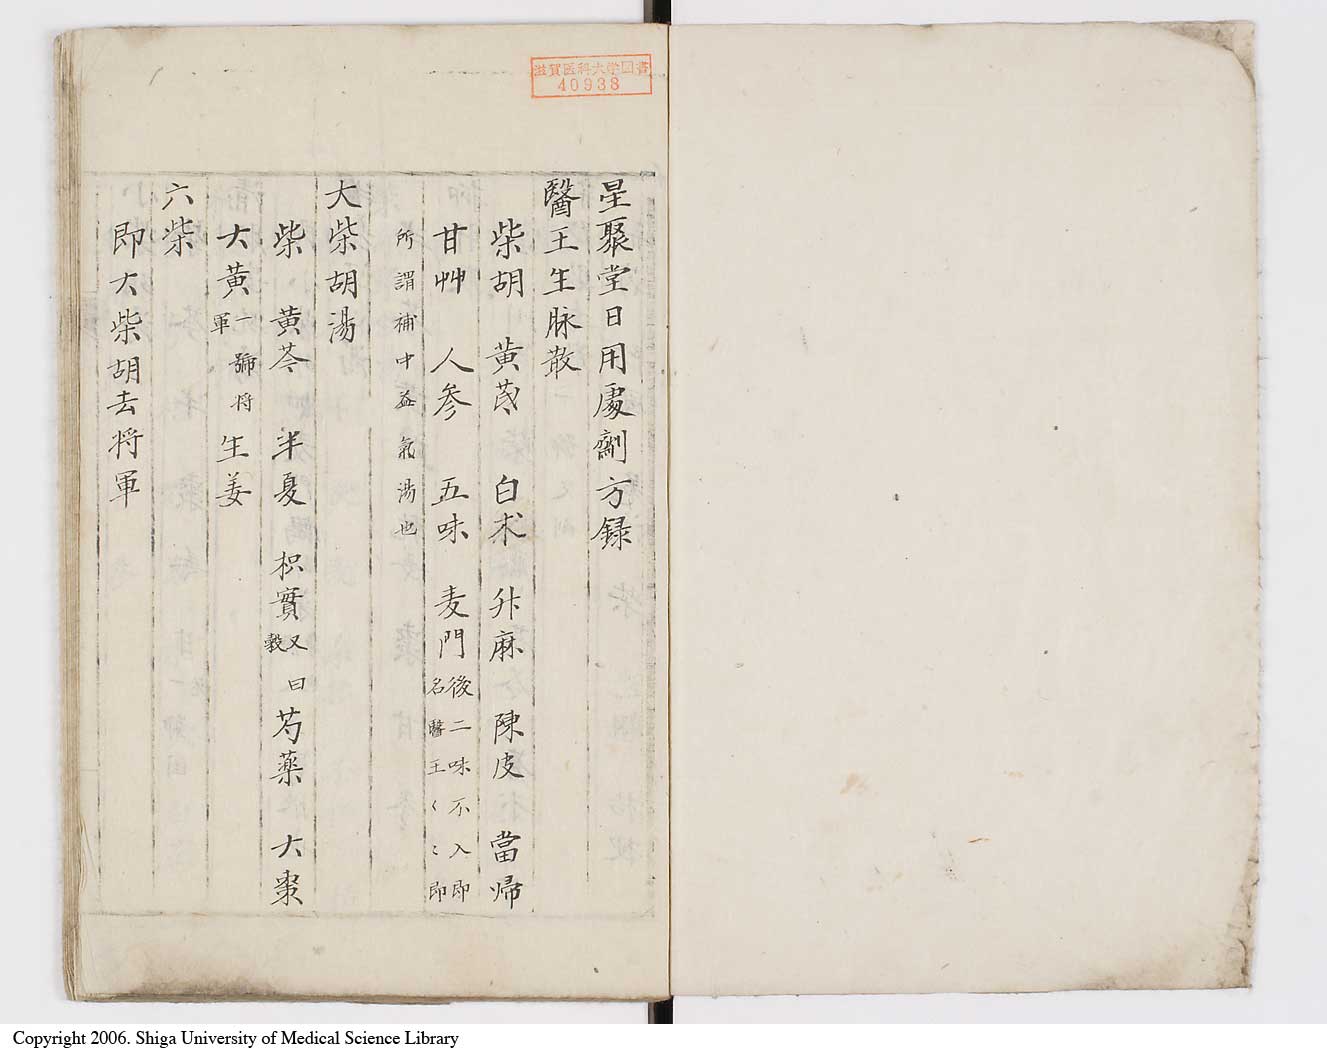 滋賀医科大学図書
40938
星聚堂日用處劑方録
醫王生脉散
柴胡 黄芪 白术 升麻 陳皮 當帰
甘艸 人参 五味 麦門 後二味不入即名醫王〱〻即
所謂補中益氣湯也
大柴胡湯
柴 黄芩 半夏 枳實 又曰穀 芍薬 大棗
大黄 一號将軍 生姜
六柴
即大柴胡去将軍
Copyright 2006. Shiga University of Medical Science Library